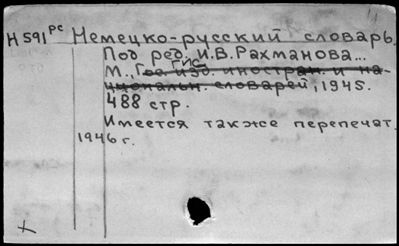 Н 591 РС Немецко-русский словарь.
Под ред. И.В.Рахманова...
М., ГИС Гос. изд. иностран. и на-
циональн. словарей, 1945.
488 стр.
Имеется также перепечат.
1946 г.